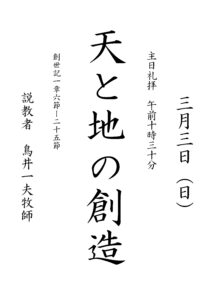 三月三日（日）
主日礼拝　午前十時三十分
天と地の創造
創世記一章六節―二十五節
説教者　鳥井一夫牧師